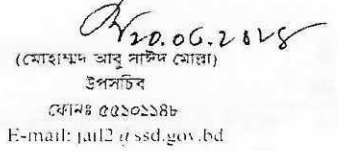 ২০.০৬.২০২৪
(মোহাম্মদ আবু সাঈদ মোল্লা)
উপসচিব
ফোনঃ ৫৫১০১১৪৮
E-mail: jail2@ssd.gov.bd